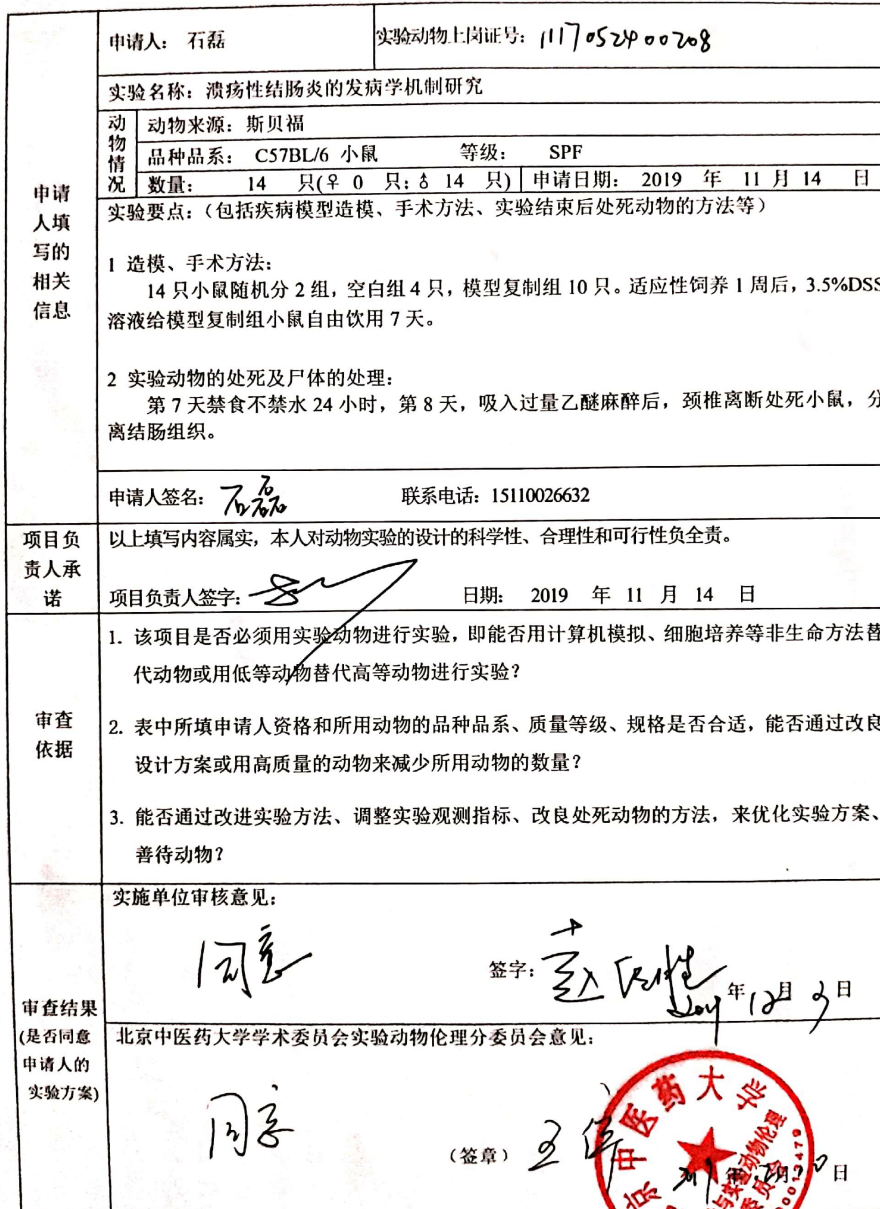 申请人： 石磊 实验动物上岗证号：1117052400208
实验名称：溃疡性结肠炎的发病学机制研究
动物情况
动物来源：斯贝福
品种品系： C57BL/6 小鼠 等级： SPF
数量： 14 只(♀ 0 只；♂ 14 只) 申请日期： 2019 年 11 月 14 日
申请
人填
写的
相关
信息
实验要点：（包括疾病模型造模、手术方法、实验结束后处死动物的方法等）
1 造模、手术方法：
14 只小鼠随机分 2 组，空白组 4 只，模型复制组 10 只。适应性饲养 1 周后，3.5%DSS
溶液给模型复制组小鼠自由饮用 7 天。
2 实验动物的处死及尸体的处理：
第 7 天禁食不禁水 24 小时，第 8 天，吸入过量乙醚麻醉后，颈椎离断处死小鼠，分
离结肠组织。
申请人签名：石磊 联系电话：15110026632
项目负
责人承
诺
以上填写内容属实，本人对动物实验的设计的科学性、合理性和可行性负全责。
项目负责人签字： 日期： 2019 年 11 月 14 日
审查
依据
1. 该项目是否必须用实验动物进行实验，即能否用计算机模拟、细胞培养等非生命方法替
代动物或用低等动物替代高等动物进行实验？
2. 表中所填申请人资格和所用动物的品种品系、质量等级、规格是否合适，能否通过改良
设计方案或用高质量的动物来减少所用动物的数量？
3. 能否通过改进实验方法、调整实验观测指标、改良处死动物的方法，来优化实验方案、
善待动物？
审查结果
(是否同意
申请人的
实验方案)
实施单位审核意见：
同意
签字： 年 12 月 日
北京中医药大学学术委员会实验动物伦理分委员会意见：
同意
（签章） 王伟 年 月 日
京中医药大学
与实验动物伦理
委员会